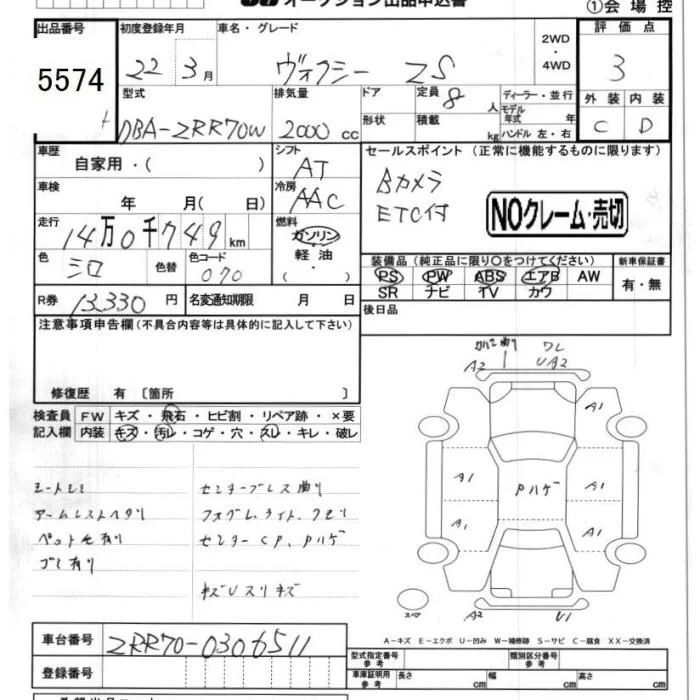 オークション出品申込書
①会場控
出品番号
5574
初度登録年月
22 3月
車名・グレード
ヴォクシー ZS
2WD
・
4WD
評価点
3
外装 内装
C D
型式
DBA-ZRR70W
排気量
2000 cc
ドア
形状
定員 8 人
積載 kg
ディーラー・並行
モデル
年式 年
ハンドル 左・右
車歴
自家用・( )
シフト
AT
車検
年 月( 日)
冷房
AAC
走行
14万0千749km
燃料
ガソリン
軽油
・
( )
色
シロ
色替
色コード
070
R券 13,330円
名変通知期限 月 日
セールスポイント (正常に機能するものに限ります)
Bカメラ
ETC付
NOクレーム・売切
装備品(純正品に限り〇をつけてください)
PS PW ABS エアB AW
SR ナビ TV カワ
新車保証書
有・無
後日品
注意事項申告欄(不具合内容等は具体的に記入して下さい)
修復歴 有〔箇所 〕
検査員
記入欄
FW キズ・飛石・ヒビ割・リペア跡・×要
内装 キズ・汚レ・コゲ・穴・スレ・キレ・破レ
シートシミ
アームレストヘタリ
ペット毛有り
ゴミ有り
センターブレス曲り
フォグ、ムライト、クモリ
センターCP、Pハゲ
キズUスリキズ
カバー曲り
ワレ
A2
UA2
A1
A1
A1
A1
A1
A1
Pハゲ
スペア
A2
U1
A-キズ E-エクボ U-凹み W-補修跡 S-サビ C-腐食 XX-交換済
車台番号
ZRR70-0306511
登録番号
型式指定番号
参考
類別区分番号
参考
車庫証明用
参考
長さ cm
幅 cm
高さ cm